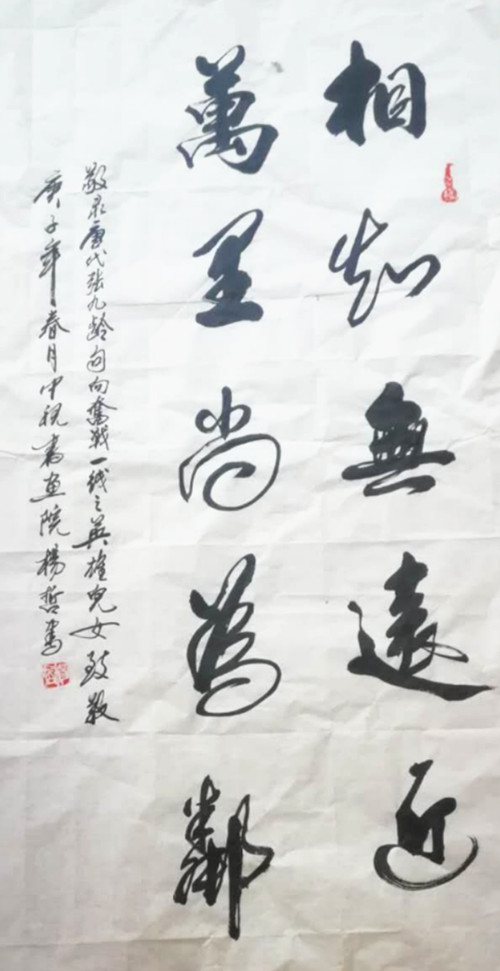 相知無遠近
萬里尚為鄰
敬录唐代張九龄句向奮戰一线之英雄児女致敬
庚子年春月中视書画院楊哲書